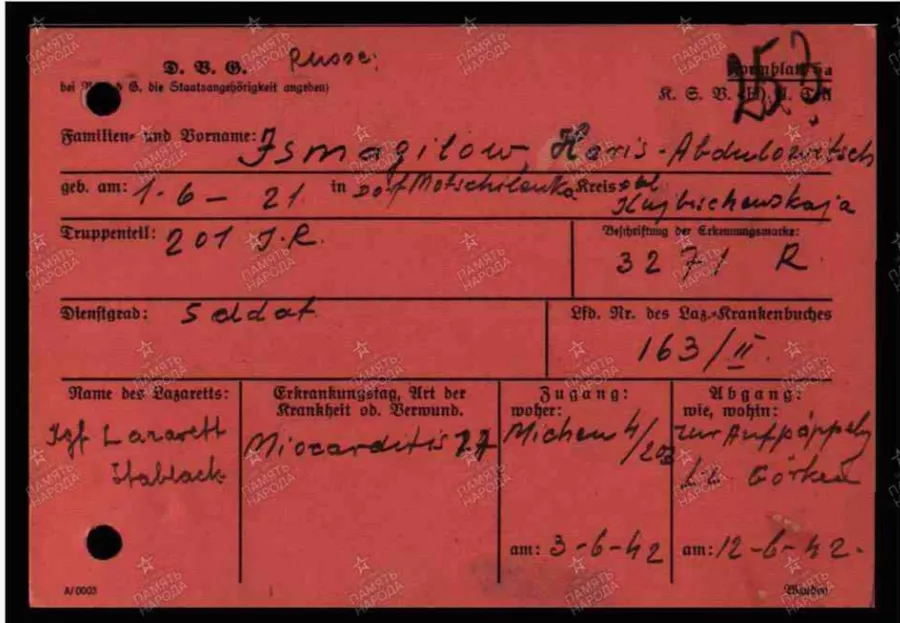 D. V. G. Russe.
bei G. die Staatsangehörigkeit angeben)
Formblatt
K. S. V.
Familien- und Vorname: Ismagilow, Haris-Abdulowitsch
geb. am: 1-6-21 in Dorf Motschilenka Kreis
Kujbischewskaja
Truppenteil: 201 J.R.
Beschriftung der Erkennungsmarke:
3271 R
Dienstgrad: Soldat
Lfd. Nr. des Laz.-Krankenbuches
163/II.
Name des Lazaretts:
Lazarett
Stablack
Erkrankungstag, Art der
Krankheit od. Verwund.
Miocarditis
Zugang:
woher:
Michen 4/203
am: 3-6-42
Abgang:
wie, wohin:
zur Aufpäppelg
Görken
am: 12-6-42.
A/0003
ПАМЯТЬ
НАРОДА